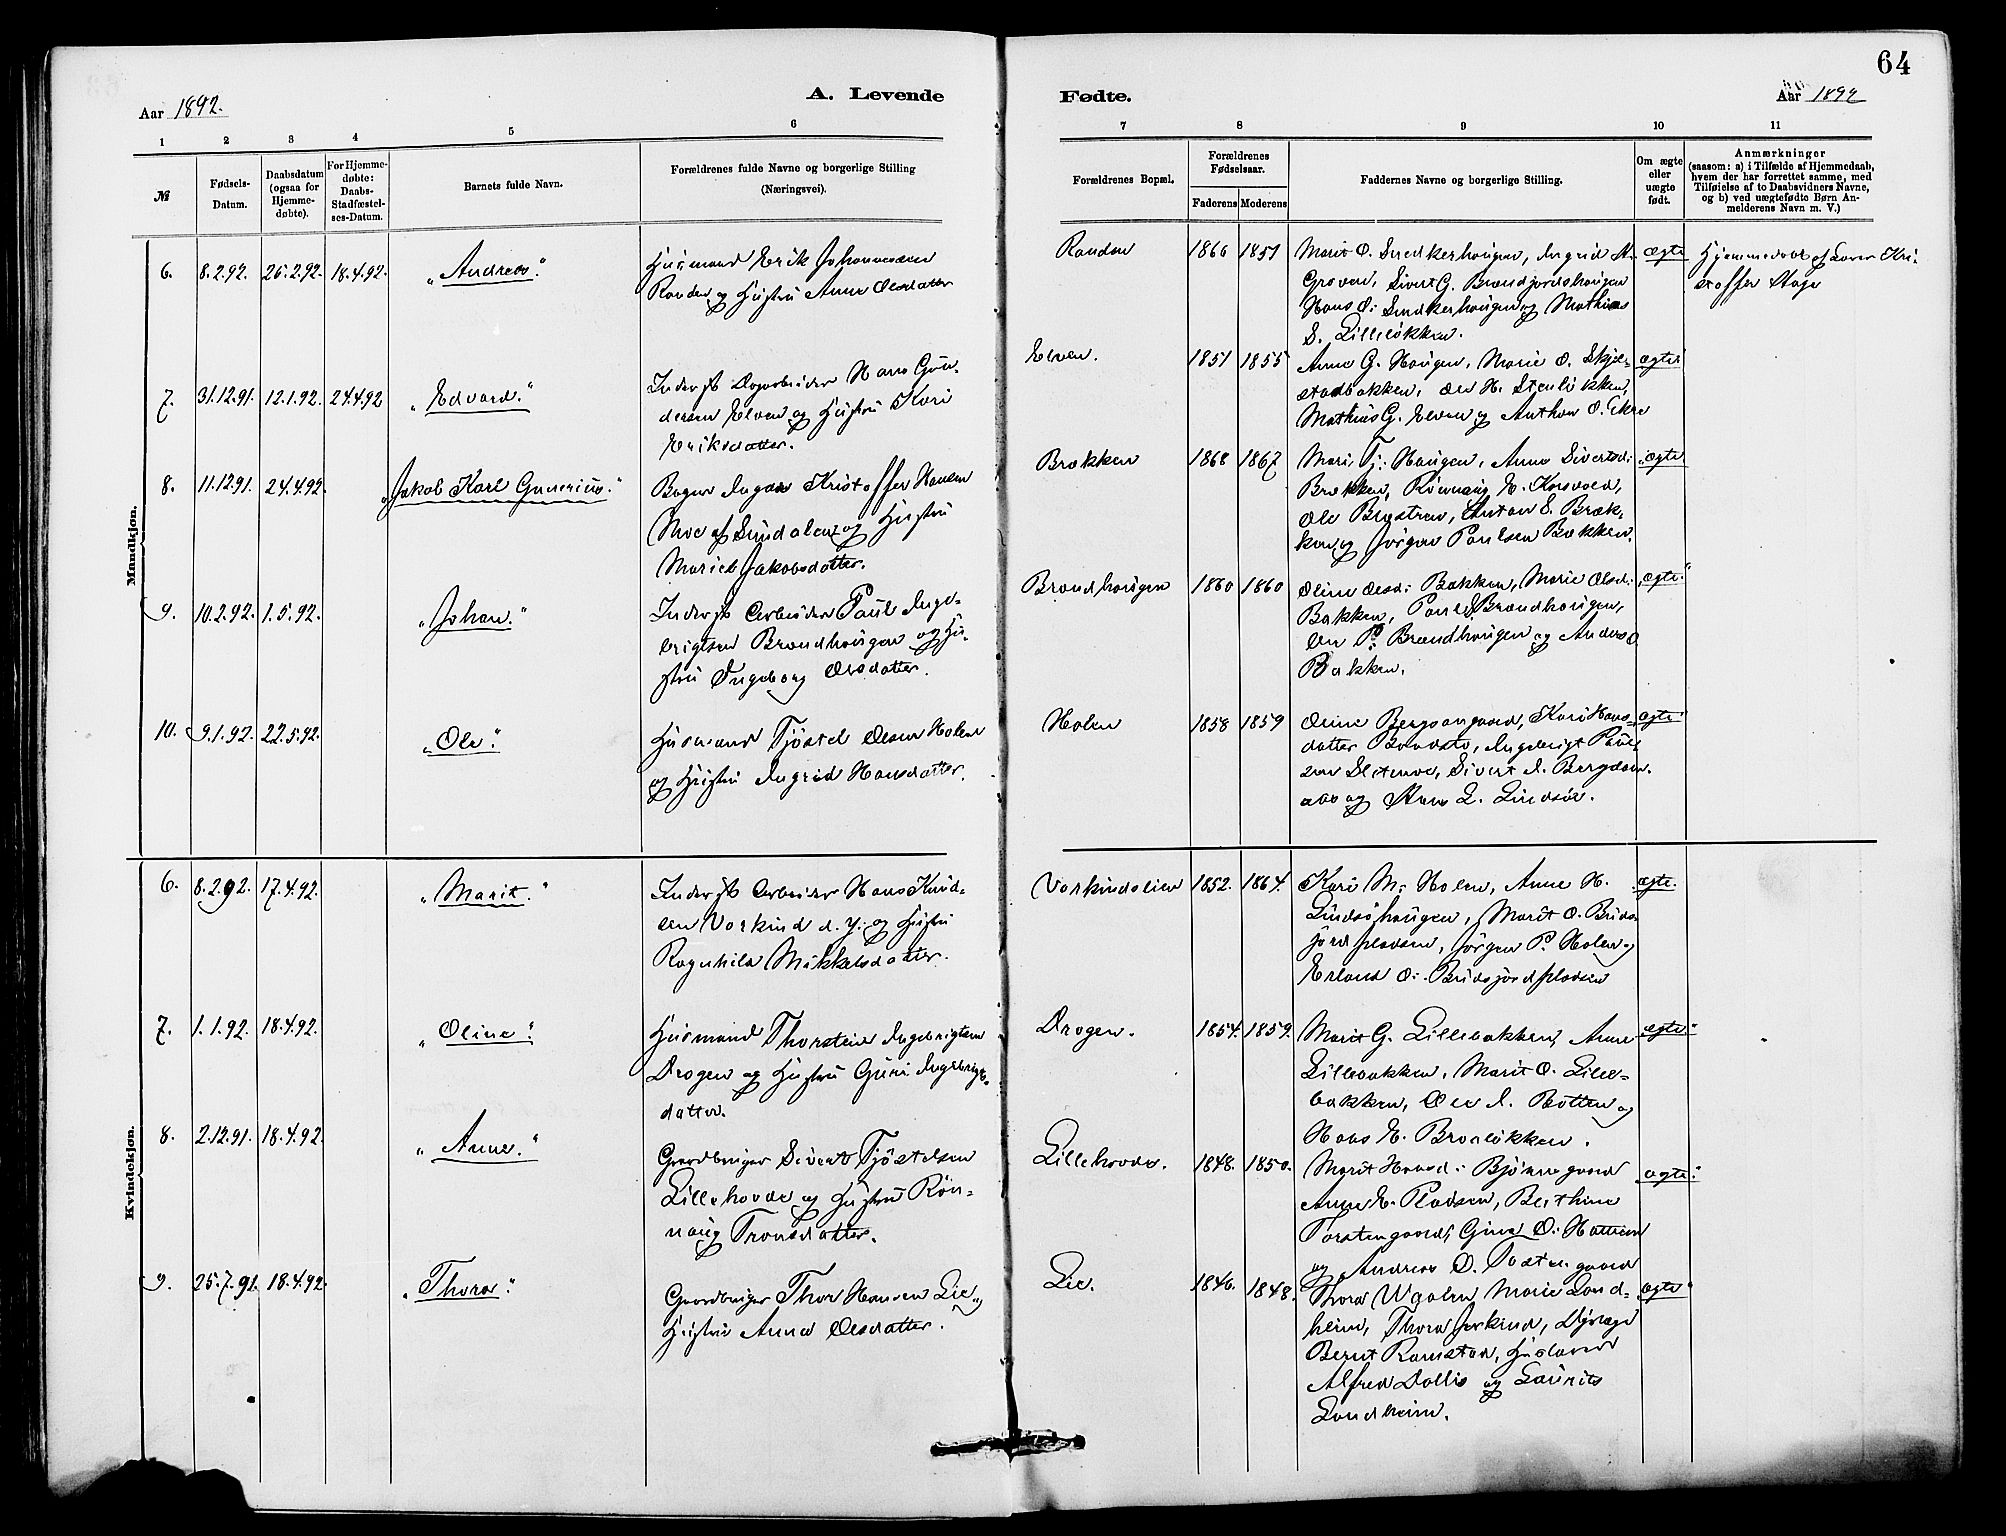 64
Aar 1892.
A. Levende
Fødte.
Aar 1892
1 2 3 4 5 6 7 8 9 10 11
№
Fødsels-
Datum.
Daabsdatum
(ogsaa for
Hjemme-
døbte).
For Hjemme-
døbte:
Daabs-
Stadfæstel-
ses-Datum.
Barnets fulde Navn.
Forældrenes fulde Navne og borgerlige Stilling
(Næringsvei).
Forældrenes Bopæl.
Forældrenes
Fødselsaar.
Faderens Moderens
Faddernes Navne og borgerlige Stilling.
Om ægte
eller
uægte
født.
Anmærkninger
(saasom: a) i Tilfælde af Hjemmedaab,
hvem der har forrettet samme, med
Tilføielse af to Daabsvidners Navne,
og b) ved uægtefødte Børn An-
melderens Navn m. V.)
Mandkjøn.
6. 8.2.92. 26.2.92. 18.4.92. „Andreas."
Husmand Erik Johannesen
Randen og Hustru Anne Olsdatter
Randen 1866 1851
Marit O. Snedkerhaugen, Ingrid M.
Groven, Sivert G. Brændjordshaugen
Hans O. Snedkerhaugen og Mathias
S. Lilleløkken.
ægte
Hjemmedøbt af Lærer Kri-
stoffer Stage
7. 31.12.91. 12.1.92. 24.4.92 „Edvard."
Inderst Dagarbeider Hans Gun-
dersen Elven og Hustru Kari
Eriksdatter.
Elven. 1851 1855
Anne G. Haugen, Marie O. Skjel-
stadbakken, Ole H. Stenløkken,
Mathias G. Elven og Anthon O. Ekre
ægte"
8. 11.12.91. 24.4.92. „Jakob Karl Gunerius."
Bager Ingar Kristoffer Hansen
Moe af Sundalen og Hustru
Marie Jakobsdatter.
Brækken 1868 1867
Mari Tj. Haugen, Anne Sivertsd:
Brækken, Rønnaug E. Korsvold,
Ole Brustren, Anton E. Bræk-
ken og Jørgen Paulsen Bækken.
„ægte
9. 10.2.92. 1.5.92. „Johan."
Inderst Arbeider Paul Inge-
brigtsen Brændhaugen og Hu-
stru Ingeborg Olsdatter.
Brændhaugen 1860 1860
Oline Olsd: Bakken, Marie Olsd:
Bakken, Paul Brændhaugen,
Ole P. Brændhaugen og Anders O
Bakken.
„ægte."
10. 9.1.92. 22.5.92. „Ole."
Husmand Tjøstel Olsen Holen
og Hustru Ingrid Hansdatter.
Holen 1858 1859
Oline Bergsongaard, Kari Hans-
datter Bondsto, Ingebrigt Paul-
sen Sletmoe, Sivert I. Bergdøn-
aas og Hans L. Lindsøe.
„ægte"
Kvindekjøn.
6. 8.2.92. 17.4.92. „Marit."
Inderst Arbeider Hans Knud-
sen Vorkind d. y: og Hustru
Ragnhild Mikkelsdatter.
Vorkindslien 1852. 1864.
Kari M: Holen, Anne H.
Lindsøhaugen, Marit O. Buds-
jordpladsen, Jørgen P. Holen og
Erland O: Budsjordpladsen
„ægte."
7. 1.1.92. 18.4.92. „Oline."
Husmand Thorstein Ingebrigtsen
Drogen og Hustru Guri Ingebrigt-
datter.
Drogen. 1854. 1859.
Marit G. Lillebakken, Anne
Lillebakken, Marit O. Lille-
bakken, Ole I. Botten og
Hans E. Brenløkken.
„ægte."
8. 2.12.91. 18.4.92. „Anne."
Gaardbruger Sivert Tjøstelsen
Lillehovde og Hustru Røn-
naug Tronsdatter.
Lillehovde. 1848. 1850.
Marit Hansd: Bjørnegaard
Anne E. Pladsen, Berthine
Torstengaard, Gina O. Hattrem
og Andreas O. Tostengaard
ægte."
9. 25.7.91. 18.4.92. „Thora."
Gaardbruger Thor Hansen Lie og
Hustru Anna Olsdatter.
Lie. 1846. 1848.
Thora Marie Lond-
heim, Thora Jerkind, Dyrlæge
Bernt Ramstad,
Alfred Dallis og Laurits
Londheim.
„ægte"